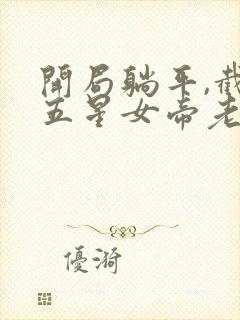 開局躺平,截
五星女帝老
優漪